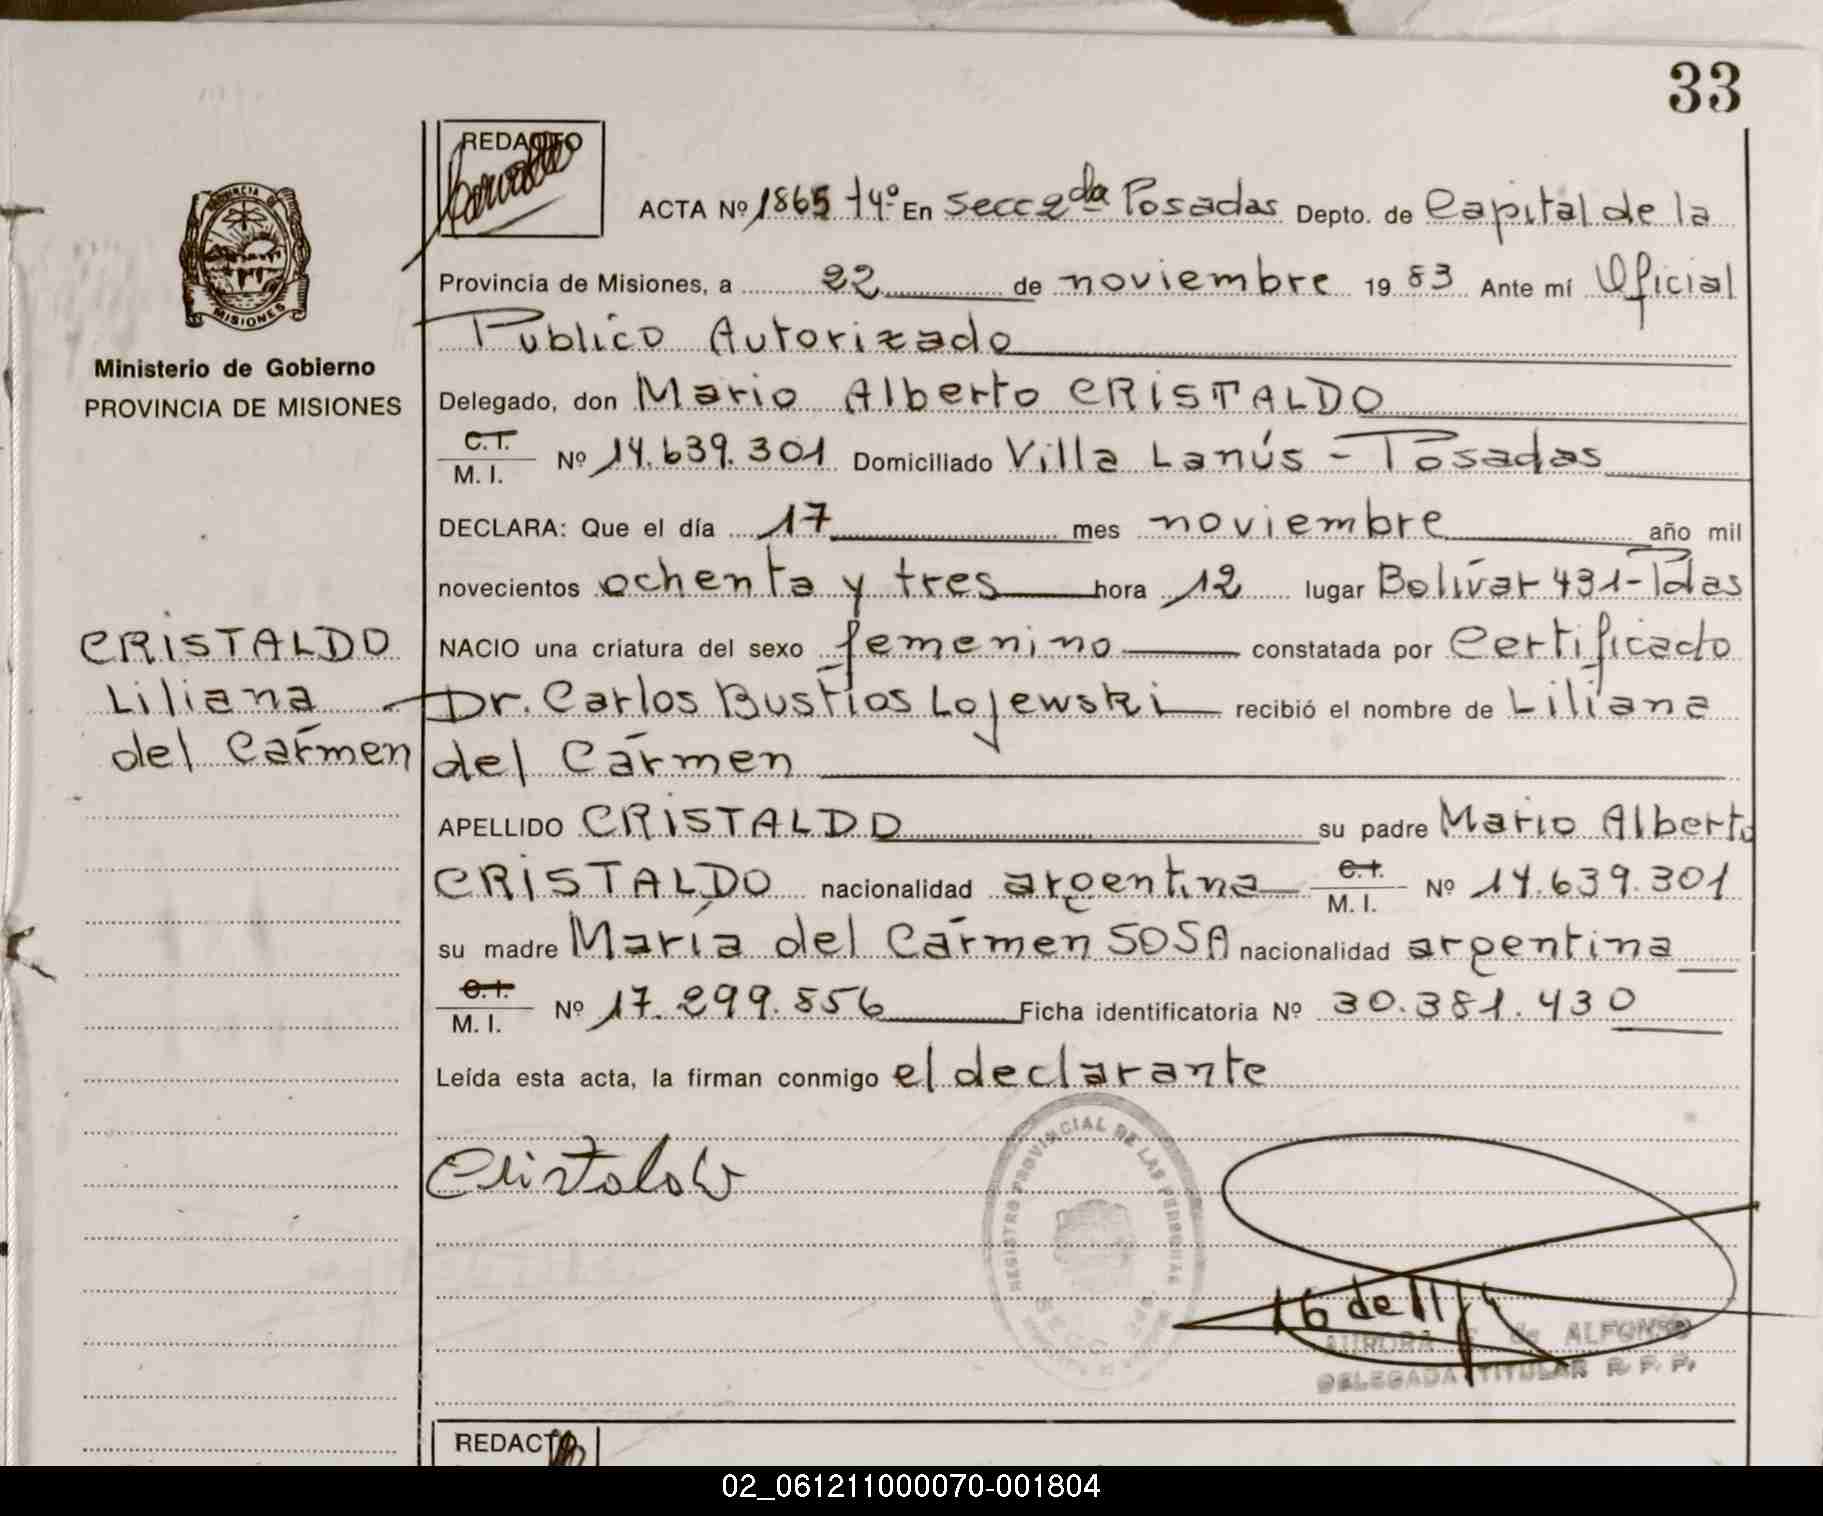 33
REDACTO
ACTA Nº 1865 tº4º En Secc 2da Posadas Depto. de Capital de la
Provincia de Misiones, a 22 de noviembre 1983 Ante mí Oficial
Público Autorizado
Delegado, don Mario Alberto CRISTALDO
C.I. M. I. Nº 14.639.301 Domiciliado Villa Lanús - Posadas
DECLARA: Que el día 17 mes noviembre año mil
novecientos ochenta y tres hora 12 lugar Bolívar 431-Pdas
NACIO una criatura del sexo femenino constatada por Certificado
Dr. Carlos Bustíos Lojewski recibió el nombre de Liliana
del Cármen
APELLIDO CRISTALDO su padre Mario Alberto
CRISTALDO nacionalidad argentina C.I. M. I. Nº 14.639.301
su madre María del Cármen SOSA nacionalidad argentina
C.I. M. I. Nº 17.299.856 Ficha identificatoria Nº 30.381.430
Leída esta acta, la firman conmigo el declarante
Cristaldo
REGISTRO PROVINCIAL DE LAS PERSONAS
16 de 11
AURORA de ALFONSO
DELEGADA TITULAR R. P. P.
PROVINCIA DE
MISIONES
Ministerio de Gobierno
PROVINCIA DE MISIONES
CRISTALDO
Liliana
del Cármen
REDACTO
02_061211000070-001804